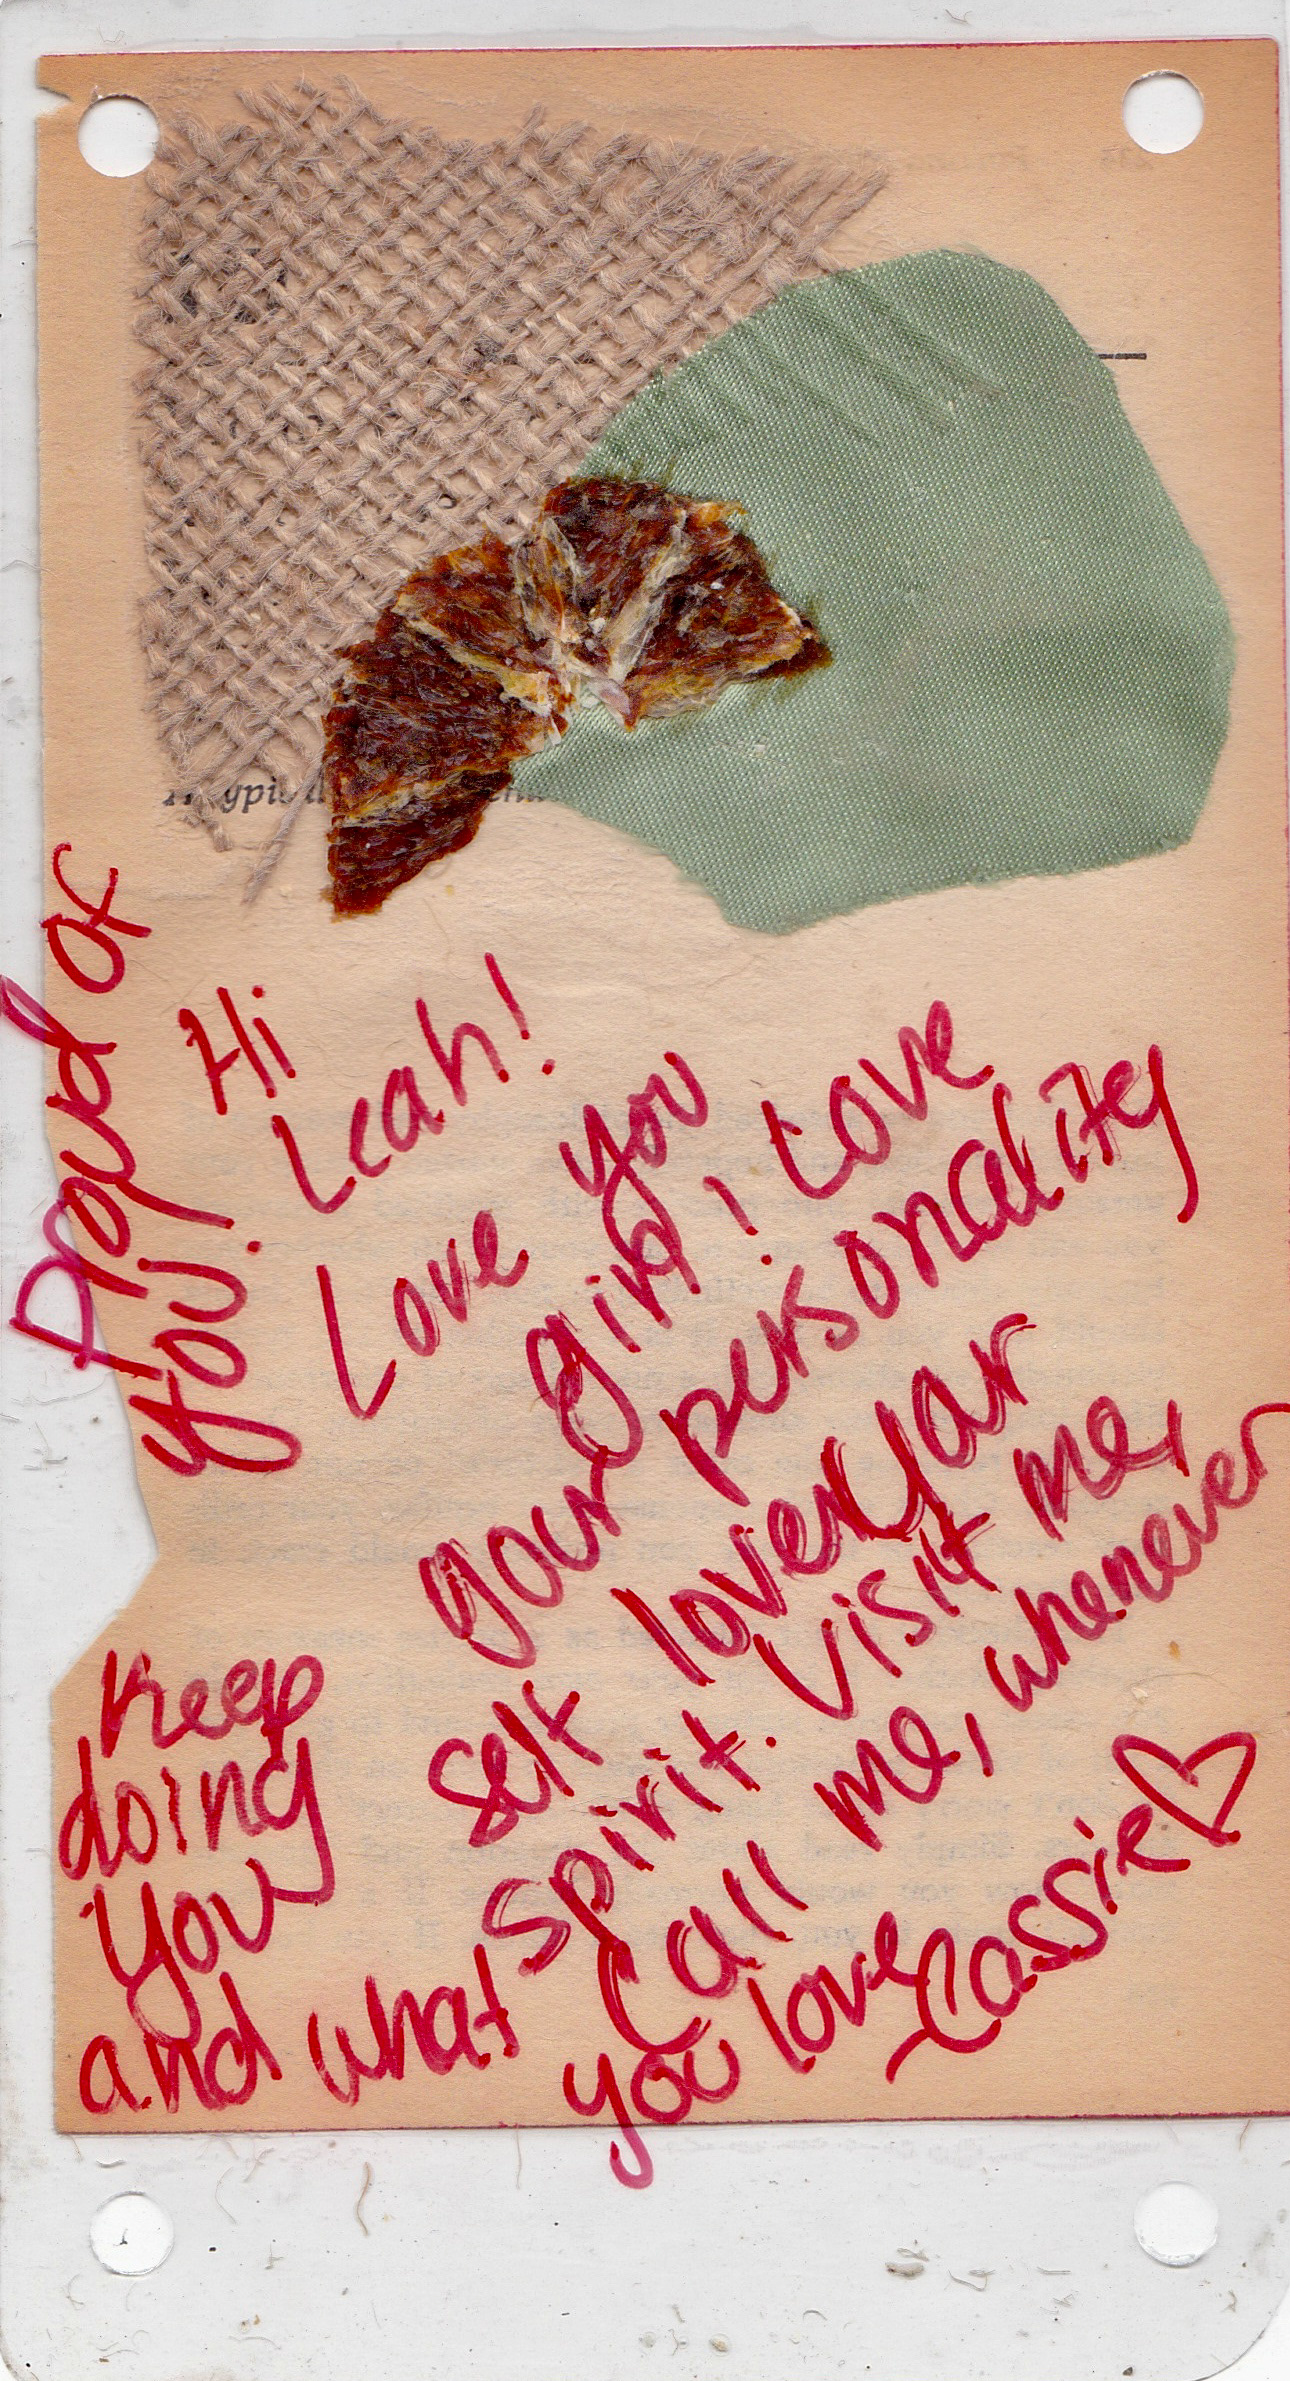 Hi
Leah!
Love you
girl! Love
your personality
self lover, Yar
spirit. Visit me,
Call me, whenever
you love
-Cassie♡
Proud of
you!
Keep
doing
you
and what